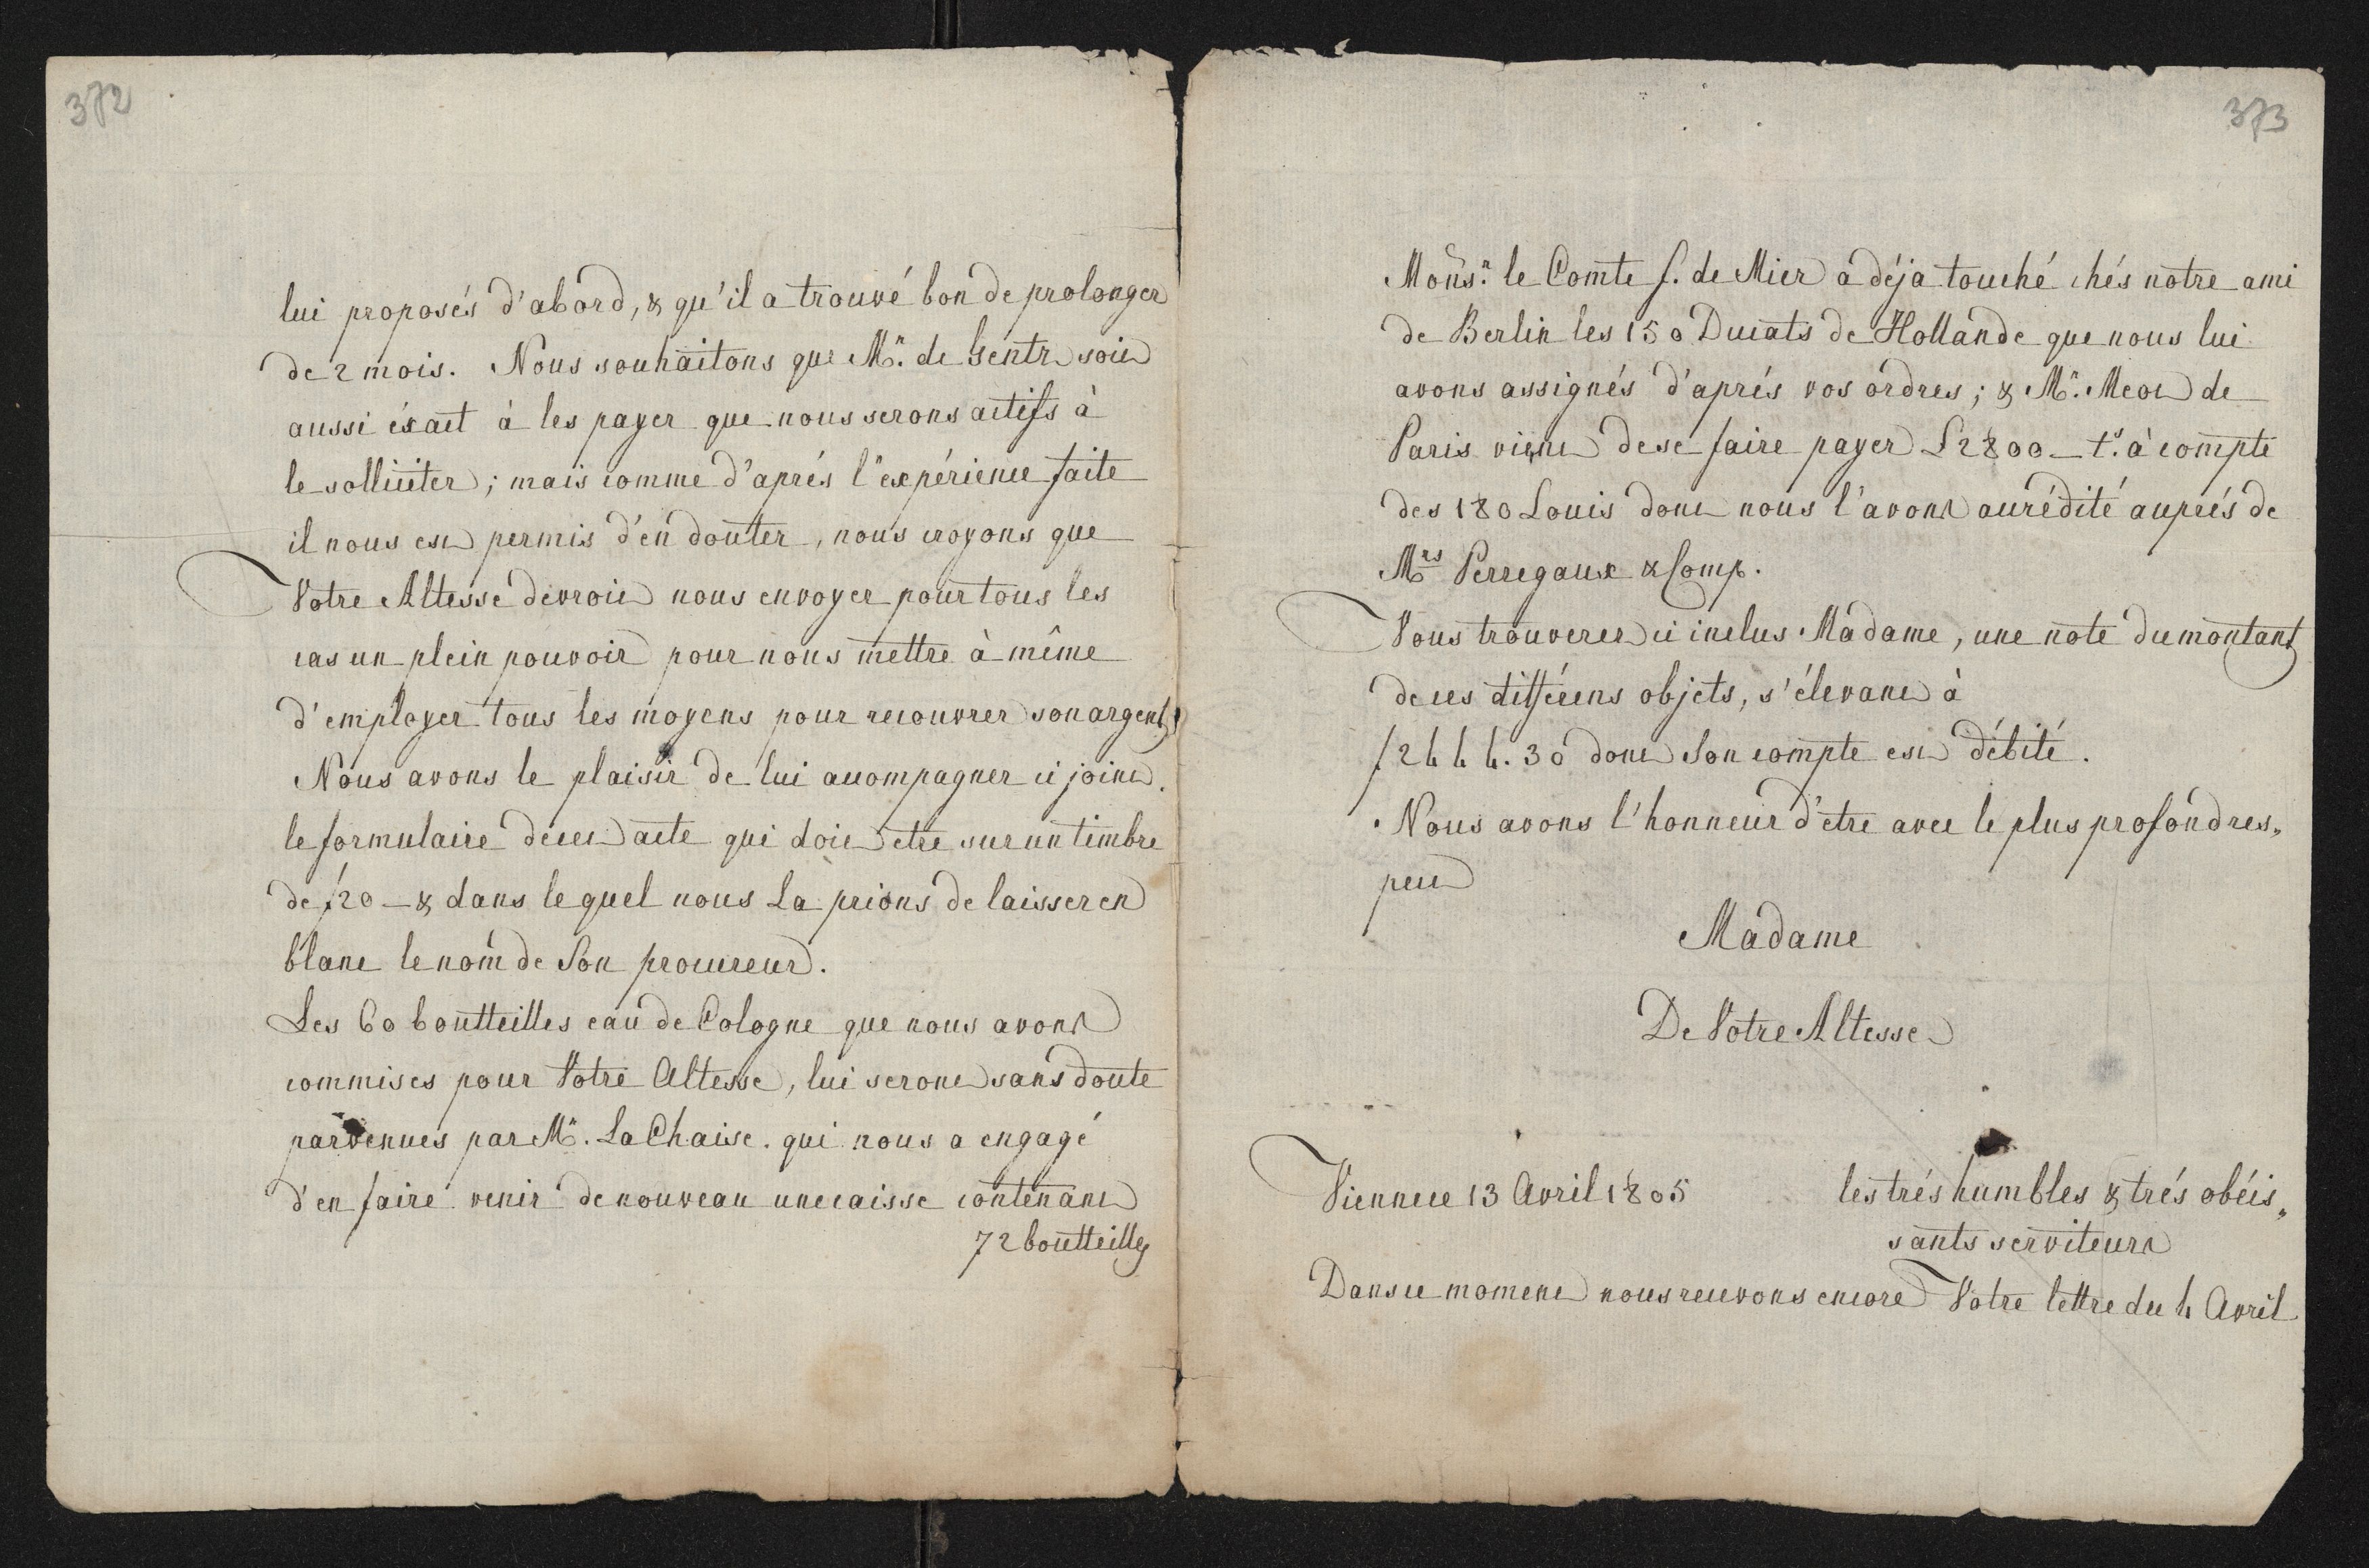 372
lui proposés d'abord, & qu'il a trouvé bon de prolonger
de 2 mois. Nous souhaitons que Mr. de Gentz soit
aussi éxact à les payer que nous serons actifs à
le solliciter; mais comme d'aprés l'expérience faite
il nous est permis d'en douter, nous croyons que
Votre Altesse devroit nous envoyer pour tous les
cas un plein pouvoir pour nous mettre à même
d'employer tous les moyens pour recouvrer son argent
Nous avons le plaisir de lui accompagner ci joint
le formulaire de cet acte qui doit etre sur un timbre
de f20 - & dans lequel nous La prions de laisser en
blanc le nom de Son procureur.
Les 60 boutteilles eau de Cologne que nous avons
commises pour Votre Altesse, lui seront sans doute
parvenues par Mr. La Chaise. qui nous a engagé
d'en faire venir de nouveau une caisse contenant
72 boutteilles
373
Monsr. le Comte f. de Mier a déja touché chés notre ami
de Berlin les 150 Ducats de Hollande que nous lui
avons assignés d'aprés vos ordres; & Mr. de
Paris vient de se faire payer £ 2800 - ts. à compte
des 180 Louis dont nous l'avons accrédité auprés de
Mrs Perregaux & Comp.
Vous trouverez ci inclus Madame, une note du montant
de ces différens objets, s'élevant à
f 2444.30 dont Son compte est débité.
Nous avons l'honneur d'etre avec le plus profond res„
pect
Madame
De Votre Altesse
Vienne ce 13 Avril 1805
les trés humbles & trés obéis„
sants serviteurs
Dans ce moment nous recevons encore Votre lettre du 4 Avril